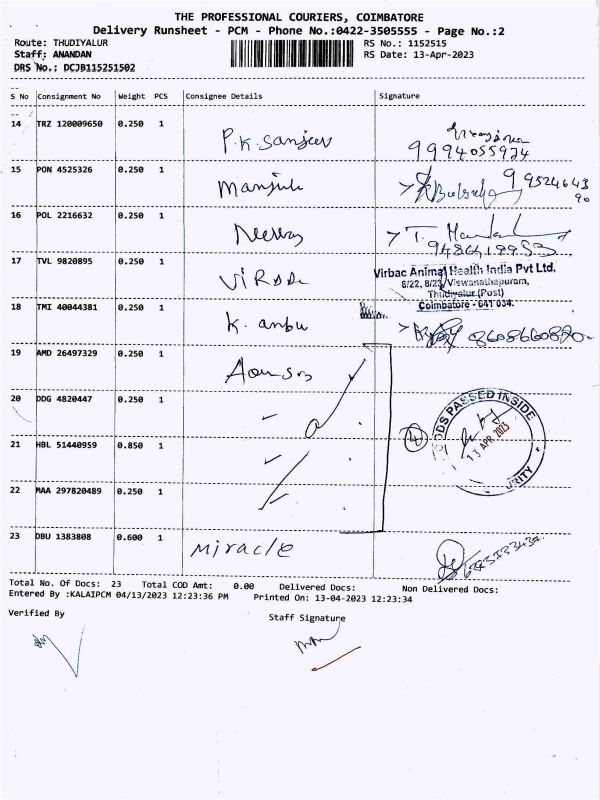 THE PROFESSIONAL COURIERS, COIMBATORE
Delivery Runsheet - PCM - Phone No.:0422-3505555 - Page No.:2
Route: THUDIYALUR RS No.: 1152515
Staff: ANANDAN RS Date: 13-Apr-2023
DRS No.: DCJB115251502
S No Consignment No Weight PCS Consignee Details Signature
14 TRZ 120009650 0.250 1 P.K. Sanjeev
9994055974
15 PON 4525326 0.250 1 Manjula
16 POL 2216632 0.250 1
17 TVL 9820895 0.250 1
Virbac Animal Health India Pvt Ltd.
8/22, 8/23, Viswanathapuram,
Thudiyalur (Post)
Coimbatore - 641 034.
18 TMI 40044381 0.250 1 K. anbu
19 AMD 26497329 0.250 1
20 DDG 4820447 0.250 1
GOODS PASSED INSIDE
13 APR 2023
SECURITY
21 HBL 51440959 0.850 1
22 MAA 297820489 0.250 1
23 DBU 1383808 0.600 1 Miracle
Total No. Of Docs: 23 Total COD Amt: 0.00 Delivered Docs: Non Delivered Docs:
Entered By :KALAIPCM 04/13/2023 12:23:36 PM Printed On: 13-04-2023 12:23:34
Verified By Staff Signature